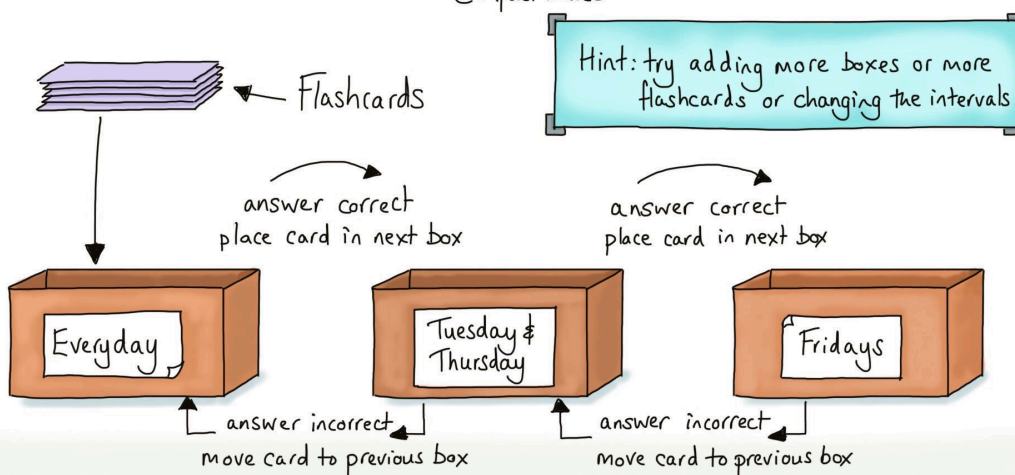 Hint: try adding more boxes or more
flashcards or changing the intervals
Flashcards
answer correct
place card in next box
answer correct
place card in next box
Everyday
Tuesday &
Thursday
Fridays
answer incorrect
move card to previous box
answer incorrect
move card to previous box